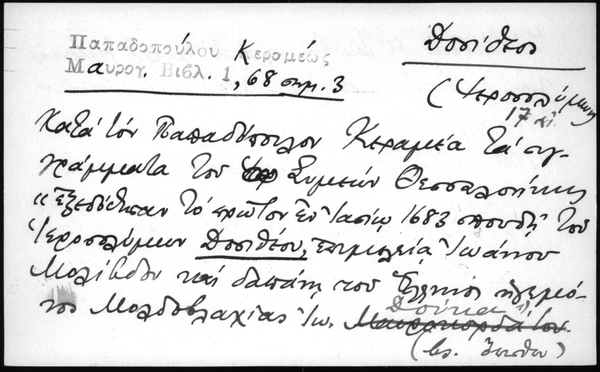 Παπαδοπούλου Κεραμέως
Μαυρογ. Βιβλ. 1, 68 σημ. 3
Δοσίθεος
(Ἱεροσολύμων
17 αἰ.
Κατὰ τὸν Παπαδόπουλον Κεραμέα τὰ συγ-
γράμματα τοῦ Συμεὼν Θεσσαλονίκης
"Ἐξεδόθησαν τὸ πρῶτον ἐν Ἰασίῳ 1683 σπουδῇ τοῦ
Ἱεροσολύμων Δοσιθέου, ἐπιμελείᾳ Ἰωάννου
Μολίβδου καὶ δαπάνῃ τοῦ Ἕλληνος ἡγεμό-
νος Μολδοβλαχίας Ἰω. Μαυροκορδάτου. Δούκα"
(βλ.